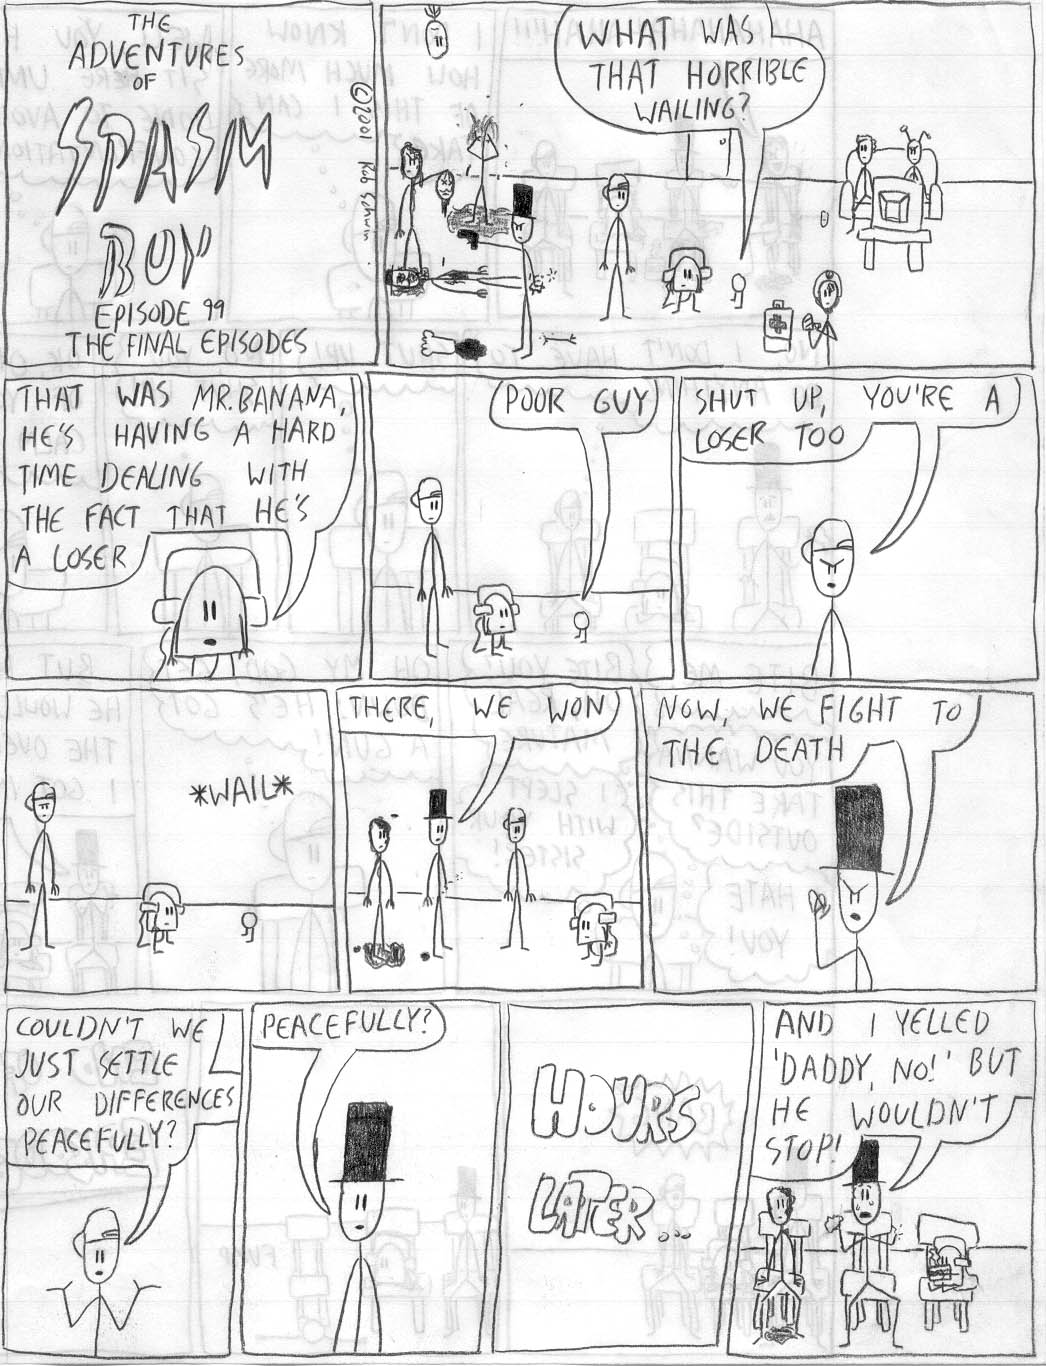 THE
ADVENTURES
OF
SPASM
BOY
EPISODE 99
THE FINAL EPISODES
©2001 Rob
WHAT WAS
THAT HORRIBLE
WAILING?
THAT WAS MR. BANANA,
HE'S HAVING A HARD
TIME DEALING WITH
THE FACT THAT HE'S
A LOSER
POOR GUY
SHUT UP, YOU'RE A
LOSER TOO
*WAIL*
THERE, WE WON
NOW, WE FIGHT TO
THE DEATH
COULDN'T WE
JUST SETTLE
OUR DIFFERENCES
PEACEFULLY?
PEACEFULLY?
HOURS
LATER...
AND I YELLED
'DADDY, NO!' BUT
HE WOULDN'T
STOP!